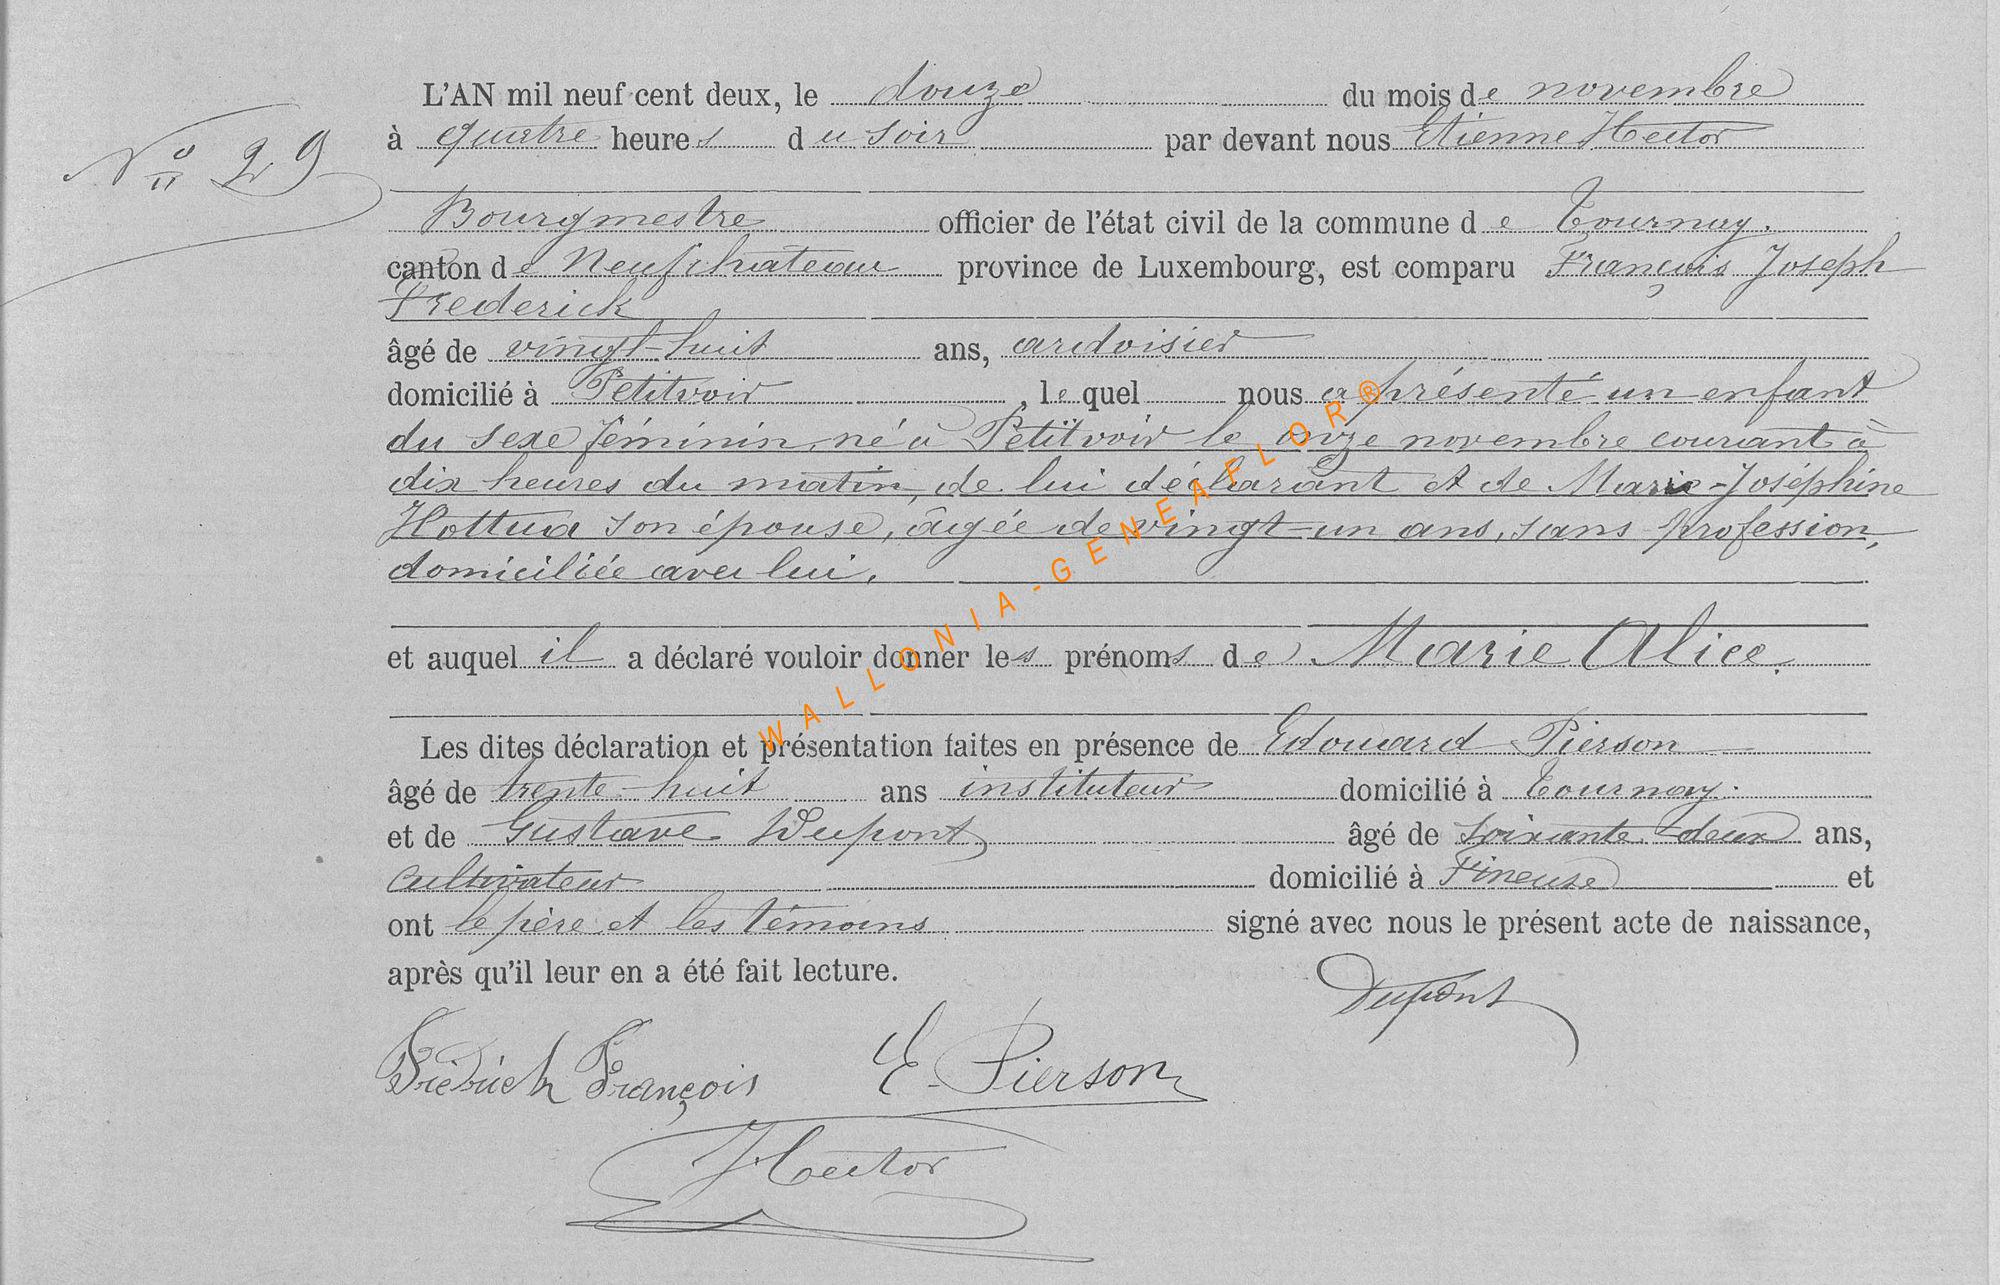 L'AN mil neuf cent deux, le douze du mois de novembre
à quatre heures du soir par devant nous Etienne Hector
N° 29
Bourgmestre officier de l'état civil de la commune de Tournay.
canton de Neufchateau province de Luxembourg, est comparu François Joseph
Frederick
âgé de vingt-huit ans, ardoisier
domicilié à Petitvoir, lequel nous a présenté un enfant
du sexe féminin, né à Petitvoir le onze novembre courant à
dix heures du matin, de lui déclarant et de Marie-Joséphine
Hottua son épouse, âgée de vingt-un ans, sans profession,
domiciliée avec lui.
et auquel il a déclaré vouloir donner les prénoms de Marie Alice.
Les dites déclaration et présentation faites en présence de Edouard Pierson
âgé de trente-huit ans instituteur domicilié à Tournay.
et de Gustave Dupont âgé de soixante-deux ans,
cultivateur domicilié à Fineuse et
ont le père et les témoins signé avec nous le présent acte de naissance,
après qu'il leur en a été fait lecture.
Dupont
François E. Pierson
Hector
WALLONIA-GENEAFLOR®